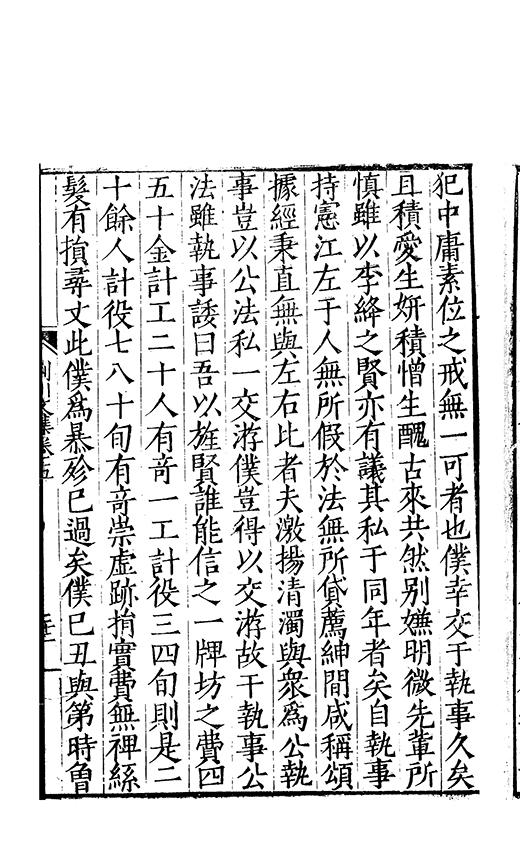 犯中庸素位之戒無一可者也僕幸交于執事久矣
且積愛生妍積憎生醜古來共然别嫌明微先軰所
慎雖以李絳之賢亦有議其私于同年者矣自執事
持憲江左于人無所假於法無所貸薦紳間咸稱頌
據經秉直無與左右比者夫激揚清濁與衆爲公執
事豈以公法私一交游僕豈得以交游故干執事公
法雖執事諉曰吾以旌賢誰能信之一牌坊之費四
五十金計工二十人有竒一工計役三四旬則是二
十餘人計役七八十旬有竒崇虚跡捐實費無裨絲
髮有損尋丈此僕爲暴殄已過矣僕已丑與第時魯
川文集卷五